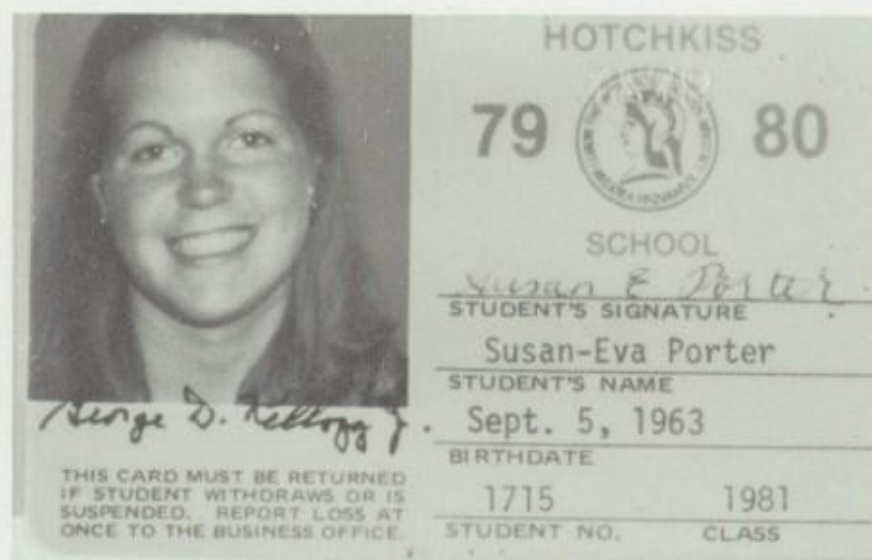 HOTCHKISS
79 80
SCHOOL
Susan E Porter
STUDENT'S SIGNATURE
Susan-Eva Porter
STUDENT'S NAME
Sept. 5, 1963
BIRTHDATE
1715 1981
STUDENT NO. CLASS
George D. Kellogg Jr.
THIS CARD MUST BE RETURNED
IF STUDENT WITHDRAWS OR IS
SUSPENDED. REPORT LOSS AT
ONCE TO THE BUSINESS OFFICE.